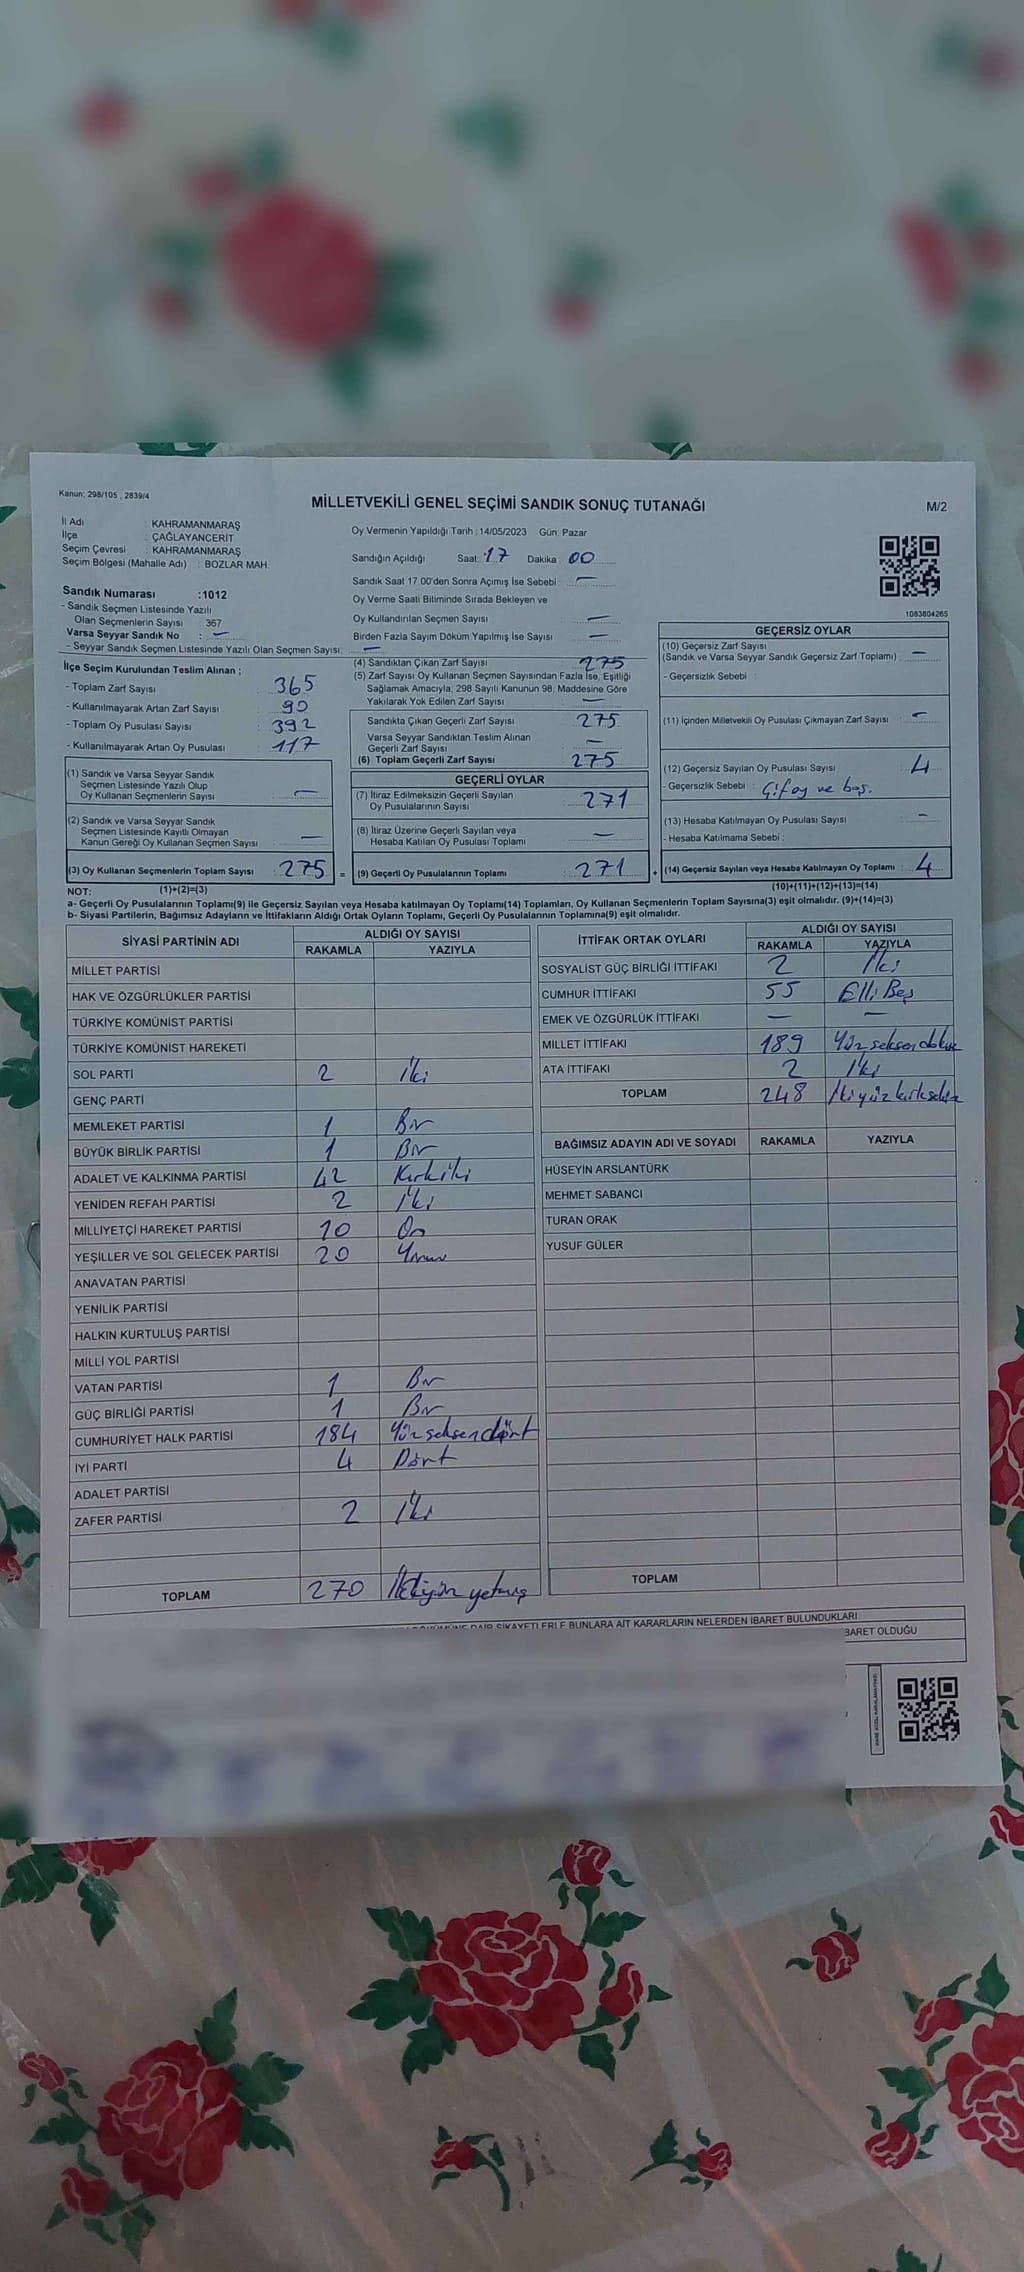 Kanun; 298/105 , 2839/4
MİLLETVEKİLİ GENEL SEÇİMİ SANDIK SONUÇ TUTANAĞI
M/2
İl Adı : KAHRAMANMARAŞ
İlçe : ÇAĞLAYANCERİT
Seçim Çevresi : KAHRAMANMARAŞ
Seçim Bölgesi (Mahalle Adı) : BOZLAR MAH.
Oy Vermenin Yapıldığı Tarih : 14/05/2023 Gün: Pazar
Sandığın Açıldığı Saat: 17 Dakika 00
Sandık Saat 17.00'den Sonra Açımış İse Sebebi : —
Oy Verme Saati Bitiminde Sırada Bekleyen ve
Oy Kullandırılan Seçmen Sayısı —
Birden Fazla Sayım Döküm Yapılmış İse Sayısı —
1083804265
Sandık Numarası :1012
- Sandık Seçmen Listesinde Yazılı
Olan Seçmenlerin Sayısı : 367
Varsa Seyyar Sandık No : —
- Seyyar Sandık Seçmen Listesinde Yazılı Olan Seçmen Sayısı: —
İlçe Seçim Kurulundan Teslim Alınan ;
- Toplam Zarf Sayısı : 365
- Kullanılmayarak Artan Zarf Sayısı : 90
- Toplam Oy Pusulası Sayısı : 392
- Kullanılmayarak Artan Oy Pusulası : 117
(1) Sandık ve Varsa Seyyar Sandık
Seçmen Listesinde Yazılı Olup
Oy Kullanan Seçmenlerin Sayısı : —
(2) Sandık ve Varsa Seyyar Sandık
Seçmen Listesinde Kayıtlı Olmayan
Kanun Gereği Oy Kullanan Seçmen Sayısı : —
(3) Oy Kullanan Seçmenlerin Toplam Sayısı : 275 =
(1)+(2)=(3)
(4) Sandıktan Çıkan Zarf Sayısı : 275
(5) Zarf Sayısı Oy Kullanan Seçmen Sayısından Fazla İse, Eşitliği
Sağlamak Amacıyla, 298 Sayılı Kanunun 98. Maddesine Göre
Yakılarak Yok Edilen Zarf Sayısı : —
Sandıkta Çıkan Geçerli Zarf Sayısı : 275
Varsa Seyyar Sandıktan Teslim Alınan
Geçerli Zarf Sayısı : —
(6) Toplam Geçerli Zarf Sayısı : 275
GEÇERLİ OYLAR
(7) İtiraz Edilmeksizin Geçerli Sayılan
Oy Pusulalarının Sayısı : 271
(8) İtiraz Üzerine Geçerli Sayılan veya
Hesaba Katılan Oy Pusulası Toplamı : —
(9) Geçerli Oy Pusulalarının Toplamı : 271 +
GEÇERSİZ OYLAR
(10) Geçersiz Zarf Sayısı
(Sandık ve Varsa Seyyar Sandık Geçersiz Zarf Toplamı) : —
- Geçersizlik Sebebi :
(11) İçinden Milletvekili Oy Pusulası Çıkmayan Zarf Sayısı : —
(12) Geçersiz Sayılan Oy Pusulası Sayısı : 4
- Geçersizlik Sebebi : Çift oy ve boş.
(13) Hesaba Katılmayan Oy Pusulası Sayısı : —
- Hesaba Katılmama Sebebi :
(14) Geçersiz Sayılan veya Hesaba Katılmayan Oy Toplamı : 4
(10)+(11)+(12)+(13)=(14)
NOT:
a- Geçerli Oy Pusulalarının Toplamı(9) ile Geçersiz Sayılan veya Hesaba katılmayan Oy Toplamı(14) Toplamları, Oy Kullanan Seçmenlerin Toplam Sayısına(3) eşit olmalıdır. (9)+(14)=(3)
b- Siyasi Partilerin, Bağımsız Adayların ve İttifakların Aldığı Ortak Oyların Toplamı, Geçerli Oy Pusulalarının Toplamına(9) eşit olmalıdır.
SİYASİ PARTİNİN ADI ALDIĞI OY SAYISI
RAKAMLA YAZIYLA
MİLLET PARTİSİ
HAK VE ÖZGÜRLÜKLER PARTİSİ
TÜRKİYE KOMÜNİST PARTİSİ
TÜRKİYE KOMÜNİST HAREKETİ
SOL PARTİ 2 İki
GENÇ PARTİ
MEMLEKET PARTİSİ 1 Bir
BÜYÜK BİRLİK PARTİSİ 1 Bir
ADALET VE KALKINMA PARTİSİ 42 Kırkiki
YENİDEN REFAH PARTİSİ 2 İki
MİLLİYETÇİ HAREKET PARTİSİ 10 On
YEŞİLLER VE SOL GELECEK PARTİSİ 20 Yirmi
ANAVATAN PARTİSİ
YENİLİK PARTİSİ
HALKIN KURTULUŞ PARTİSİ
MİLLİ YOL PARTİSİ
VATAN PARTİSİ 1 Bir
GÜÇ BİRLİĞİ PARTİSİ 1 Bir
CUMHURİYET HALK PARTİSİ 184 Yüzseksendört
İYİ PARTİ 4 Dört
ADALET PARTİSİ
ZAFER PARTİSİ 2 İki
TOPLAM 270 İkiyüz yetmiş
İTTİFAK ORTAK OYLARI ALDIĞI OY SAYISI
RAKAMLA YAZIYLA
SOSYALİST GÜÇ BİRLİĞİ İTTİFAKI 2 İki
CUMHUR İTTİFAKI 55 Elli Beş
EMEK VE ÖZGÜRLÜK İTTİFAKI — —
MİLLET İTTİFAKI 189 Yüzseksendokuz
ATA İTTİFAKI 2 İki
TOPLAM 248 İkiyüzkırksekiz
BAĞIMSIZ ADAYIN ADI VE SOYADI RAKAMLA YAZIYLA
HÜSEYİN ARSLANTÜRK
MEHMET SABANCI
TURAN ORAK
YUSUF GÜLER
TOPLAM
DAİR ŞİKAYETLERLE BUNLARA AİT KARARLARIN NELERDEN İBARET BULUNDUKLARI
BARET OLDUĞU